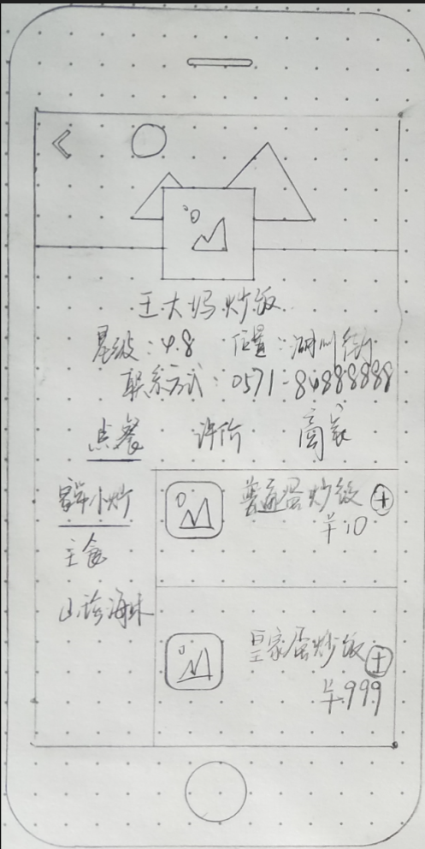 王大妈炒饭
星级：4.8 位置：湖州街
联系方式：0571-84888888
点餐 评价 商家
家常小炒
主食
山珍海味
普通蛋炒饭
￥10
皇家蛋炒饭
￥999